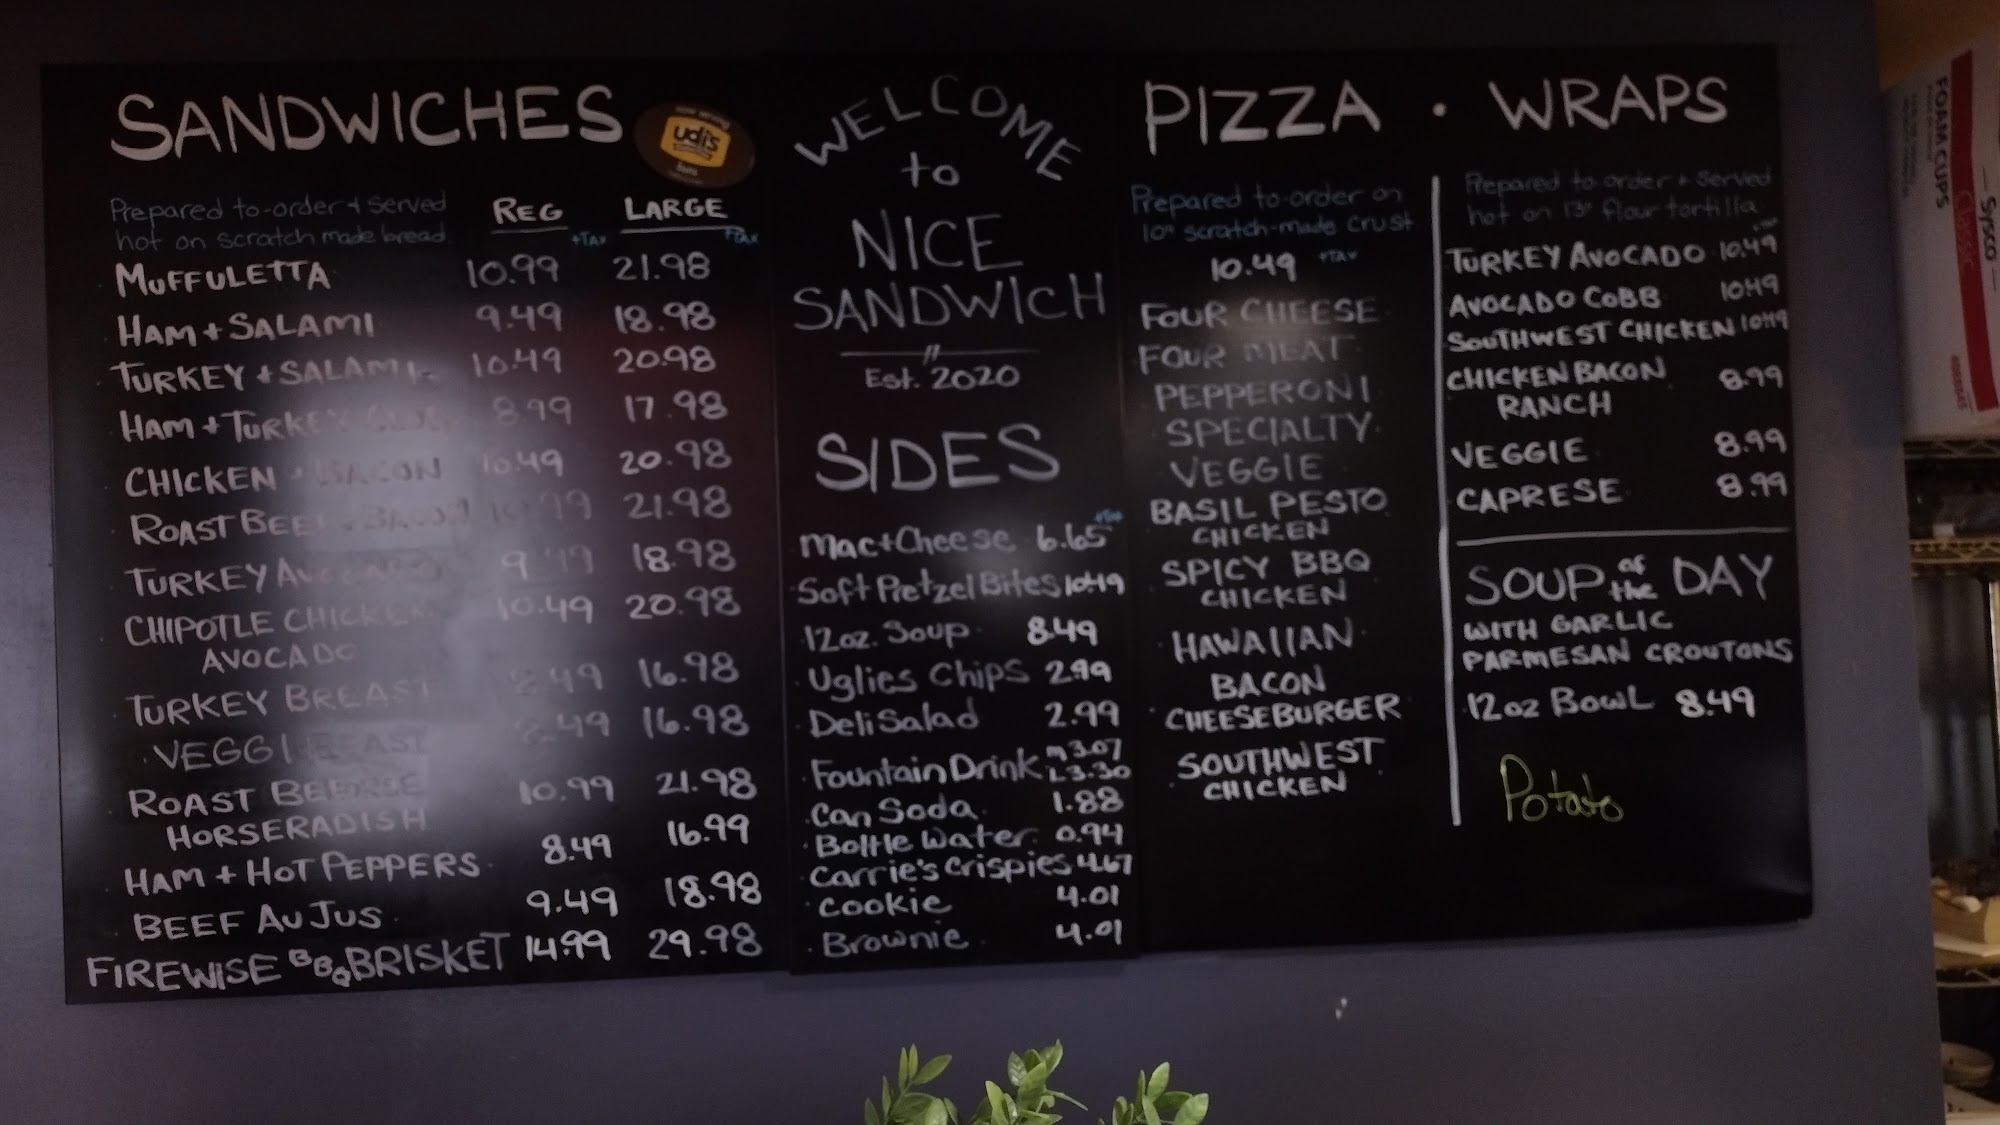 SANDWICHES
udi's
Prepared to-order + served
hot on scratch made bread
REG LARGE
+TAX +TAX
MUFFULETTA 10.99 21.98
HAM + SALAMI 9.49 18.98
TURKEY + SALAMI 10.49 20.98
HAM + TURKEY CLUB 8.99 17.98
CHICKEN + BACON 10.49 20.98
ROAST BEEF + BACON 10.99 21.98
TURKEY AVOCADO 9.49 18.98
CHIPOTLE CHICKEN 10.49 20.98
AVOCADO
TURKEY BREAST 8.49 16.98
VEGGIE 8.49 16.98
ROAST BEEF 10.99 21.98
HORSERADISH
HAM + HOT PEPPERS 8.49 16.99
BEEF AU JUS 9.49 18.98
FIREWISE BBQ BRISKET 14.99 29.98
WELCOME
to
NICE
SANDWICH
Est. 2020
SIDES
+Tax
Mac+Cheese 6.65
Soft Pretzel Bites 10.49
12oz. Soup 8.49
Uglies Chips 2.99
Deli Salad 2.99
Fountain Drink M 3.07
L 3.30
Can Soda 1.88
Bottle Water 0.94
Carrie's Crispies 4.67
Cookie 4.01
Brownie 4.01
PIZZA • WRAPS
Prepared to-order on
10" scratch-made crust
10.49 +TAX
FOUR CHEESE
FOUR MEAT
PEPPERONI
SPECIALTY
VEGGIE
BASIL PESTO
CHICKEN
SPICY BBQ
CHICKEN
HAWAIIAN
BACON
CHEESEBURGER
SOUTHWEST
CHICKEN
Prepared to order + served
hot on 13" flour tortilla
TURKEY AVOCADO 10.49
AVOCADO COBB 10.49
SOUTHWEST CHICKEN 10.49
CHICKEN BACON 8.99
RANCH
VEGGIE 8.99
CAPRESE 8.99
SOUP of the DAY
WITH GARLIC
PARMESAN CROUTONS
12oz BOWL 8.49
Potato
FOAM CUPS
Classic
Sysco